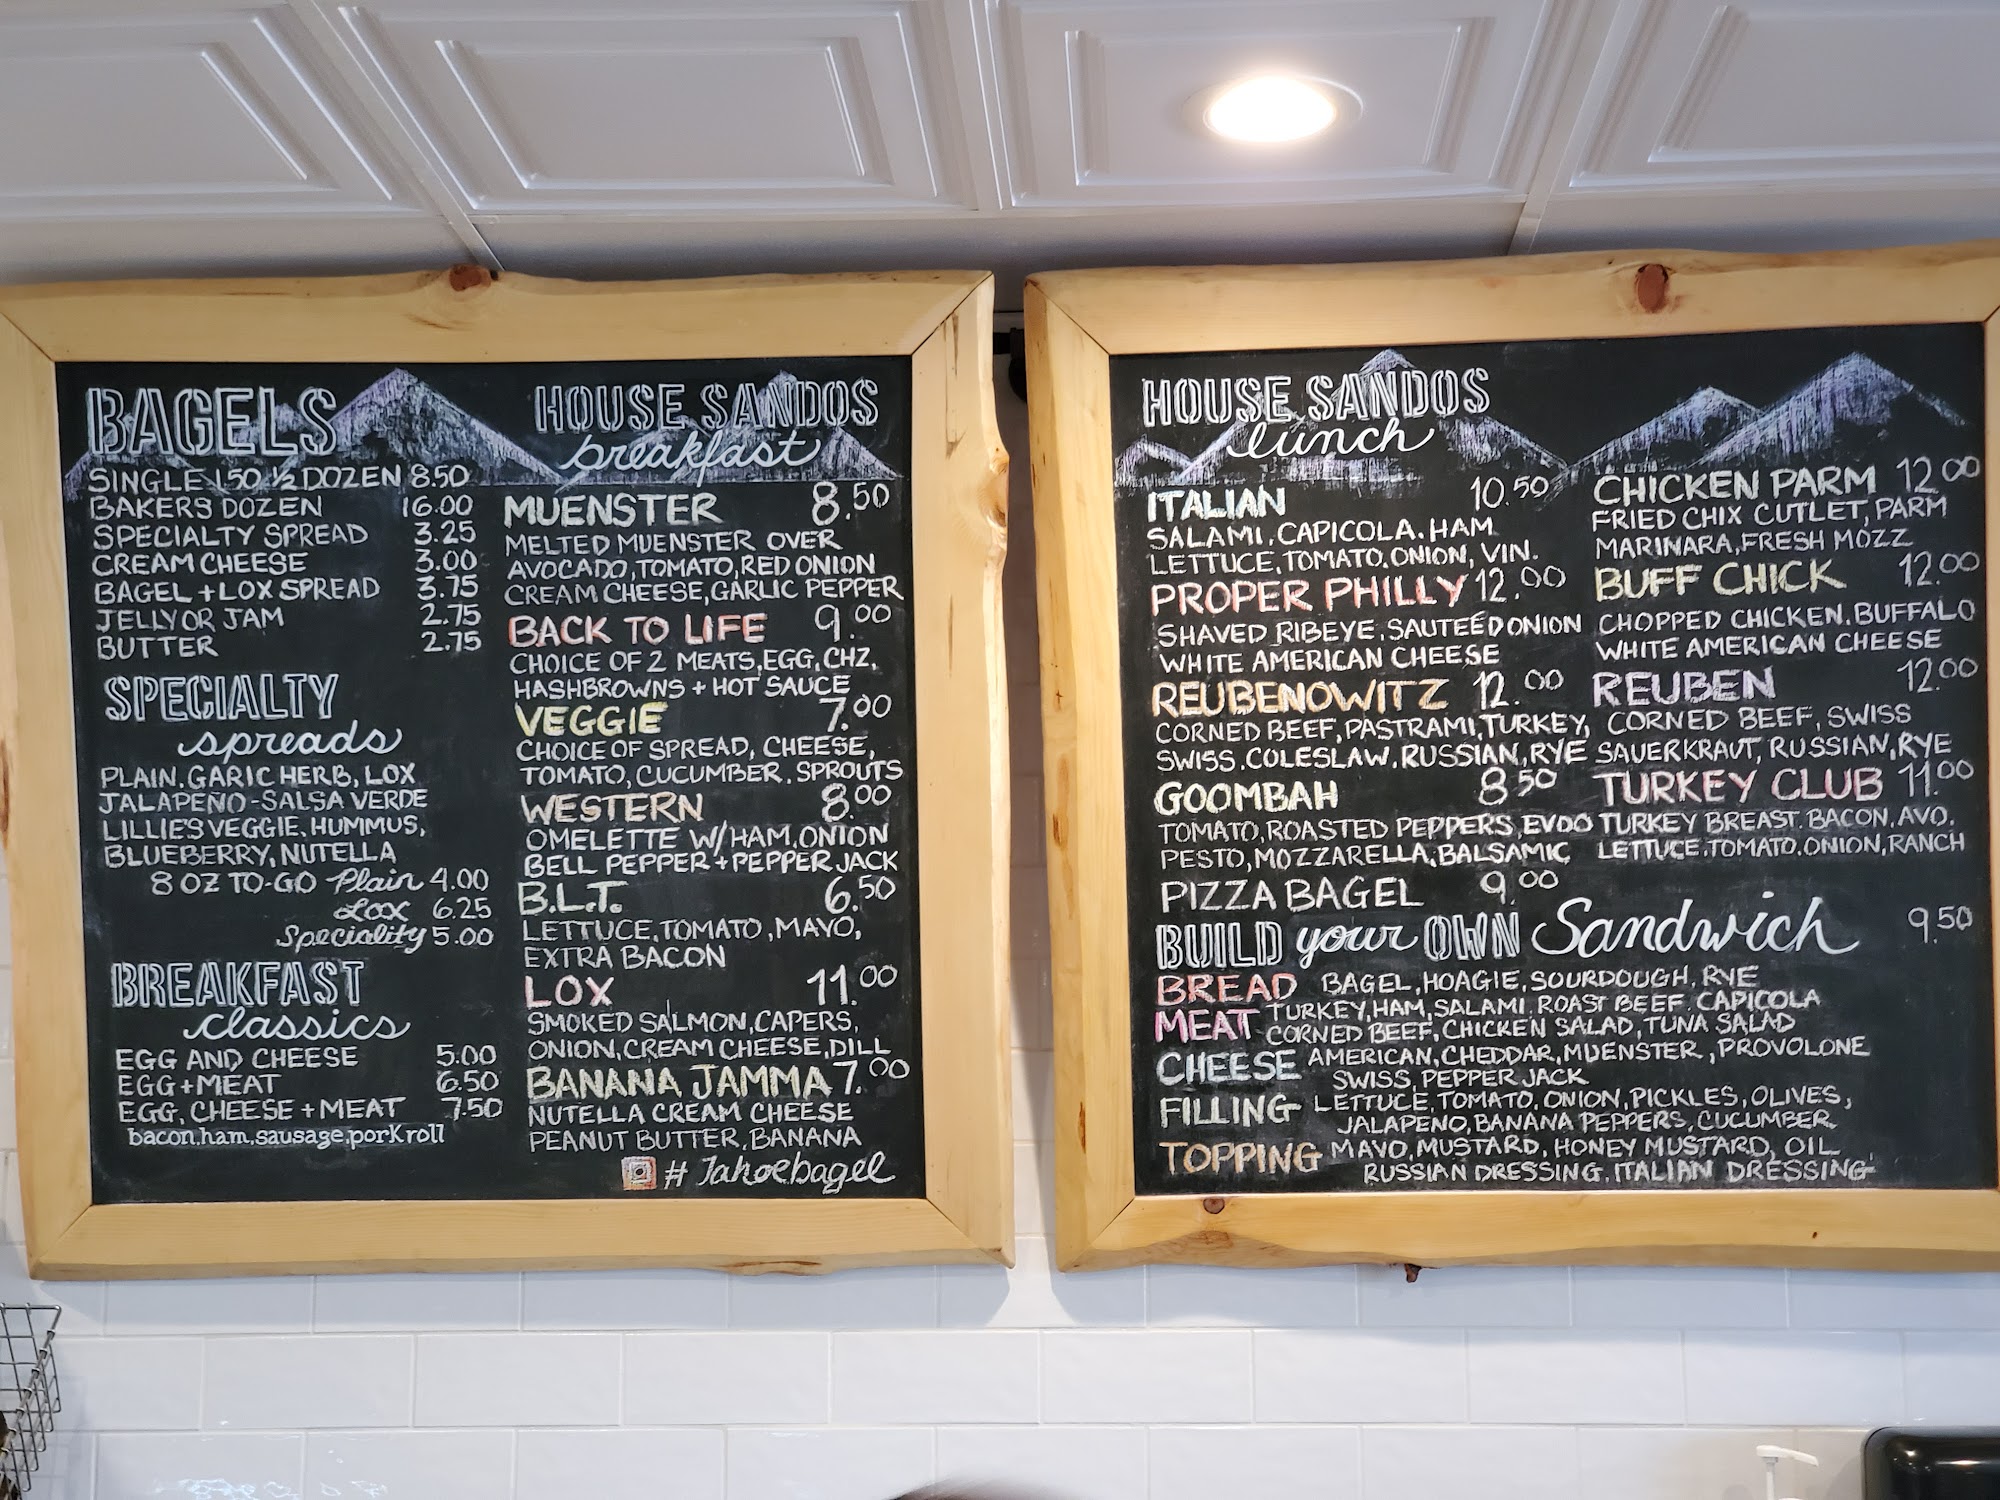 BAGELS
SINGLE 1.50 ½ DOZEN 8.50
BAKERS DOZEN 16.00
SPECIALTY SPREAD 3.25
CREAM CHEESE 3.00
BAGEL + LOX SPREAD 3.75
JELLY OR JAM 2.75
BUTTER 2.75
SPECIALTY
spreads
PLAIN, GARIC HERB, LOX
JALAPEÑO-SALSA VERDE
LILLIE'S VEGGIE, HUMMUS,
BLUEBERRY, NUTELLA
8 OZ TO-GO Plain 4.00
Lox 6.25
Speciality 5.00
BREAKFAST
classics
EGG AND CHEESE 5.00
EGG + MEAT 6.50
EGG, CHEESE + MEAT 7.50
bacon, ham, sausage, porK roll
HOUSE SANDOS
breakfast
MUENSTER 8.50
MELTED MUENSTER OVER
AVOCADO, TOMATO, RED ONION
CREAM CHEESE, GARLIC PEPPER
BACK TO LIFE 9.00
CHOICE OF 2 MEATS, EGG, CHZ,
HASHBROWNS + HOT SAUCE
VEGGIE 7.00
CHOICE OF SPREAD, CHEESE,
TOMATO, CUCUMBER, SPROUTS
WESTERN 8.00
OMELETTE W/ HAM, ONION
BELL PEPPER + PEPPER JACK
B.L.T. 6.50
LETTUCE, TOMATO, MAYO,
EXTRA BACON
LOX 11.00
SMOKED SALMON, CAPERS,
ONION, CREAM CHEESE, DILL
BANANA JAMMA 7.00
NUTELLA CREAM CHEESE
PEANUT BUTTER, BANANA
# Tahoebagel
HOUSE SANDOS
lunch
ITALIAN 10.50
SALAMI, CAPICOLA, HAM
LETTUCE, TOMATO, ONION, VIN.
PROPER PHILLY 12.00
SHAVED RIBEYE, SAUTEED ONION
WHITE AMERICAN CHEESE
REUBENOWITZ 12.00
CORNED BEEF, PASTRAMI, TURKEY,
SWISS, COLESLAW, RUSSIAN, RYE
GOOMBAH 8.50
TOMATO, ROASTED PEPPERS, EVOO
PESTO, MOZZARELLA, BALSAMIC
PIZZA BAGEL 9.00
CHICKEN PARM 12.00
FRIED CHIX CUTLET, PARM
MARINARA, FRESH MOZZ
BUFF CHICK 12.00
CHOPPED CHICKEN, BUFFALO
WHITE AMERICAN CHEESE
REUBEN 12.00
CORNED BEEF, SWISS
SAUERKRAUT, RUSSIAN, RYE
TURKEY CLUB 11.00
TURKEY BREAST, BACON, AVO.
LETTUCE, TOMATO, ONION, RANCH
BUILD your OWN Sandwich 9.50
BREAD BAGEL, HOAGIE, SOURDOUGH, RYE
MEAT TURKEY, HAM, SALAMI, ROAST BEEF, CAPICOLA
CORNED BEEF, CHICKEN SALAD, TUNA SALAD
CHEESE AMERICAN, CHEDDAR, MUENSTER, PROVOLONE
SWISS, PEPPER JACK
FILLING LETTUCE, TOMATO, ONION, PICKLES, OLIVES,
JALAPEÑO, BANANA PEPPERS, CUCUMBER
TOPPING MAYO, MUSTARD, HONEY MUSTARD, OIL
RUSSIAN DRESSING, ITALIAN DRESSING